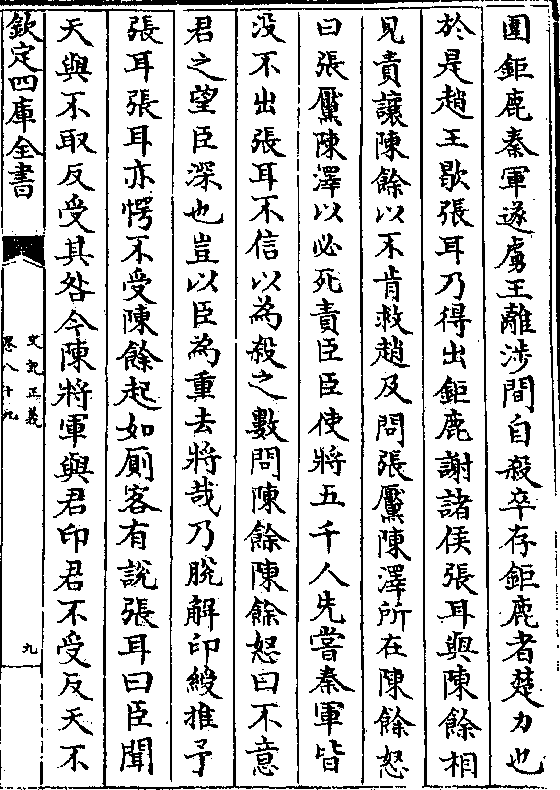 圍鉅鹿秦軍遂虜王離涉間自殺卒存鉅鹿者楚力也
於是趙王歇張耳乃得出鉅鹿謝諸侯張耳與陳餘相
見責讓陳餘以不肯救趙及問張黶陳澤所在陳餘怒
曰張黶陳澤以必死責臣臣使將五千人先嘗秦軍皆
没不出張耳不信以為殺之數問陳餘陳餘怒曰不意
君之望臣深也豈以臣為重去將哉乃脫解印綬推予
張耳張耳亦愕不受陳餘起如厠客有說張耳曰臣聞
天與不取反受其咎今陳將軍與君印君不受反天不
欽定四庫全書
史記正義
卷八十九
九